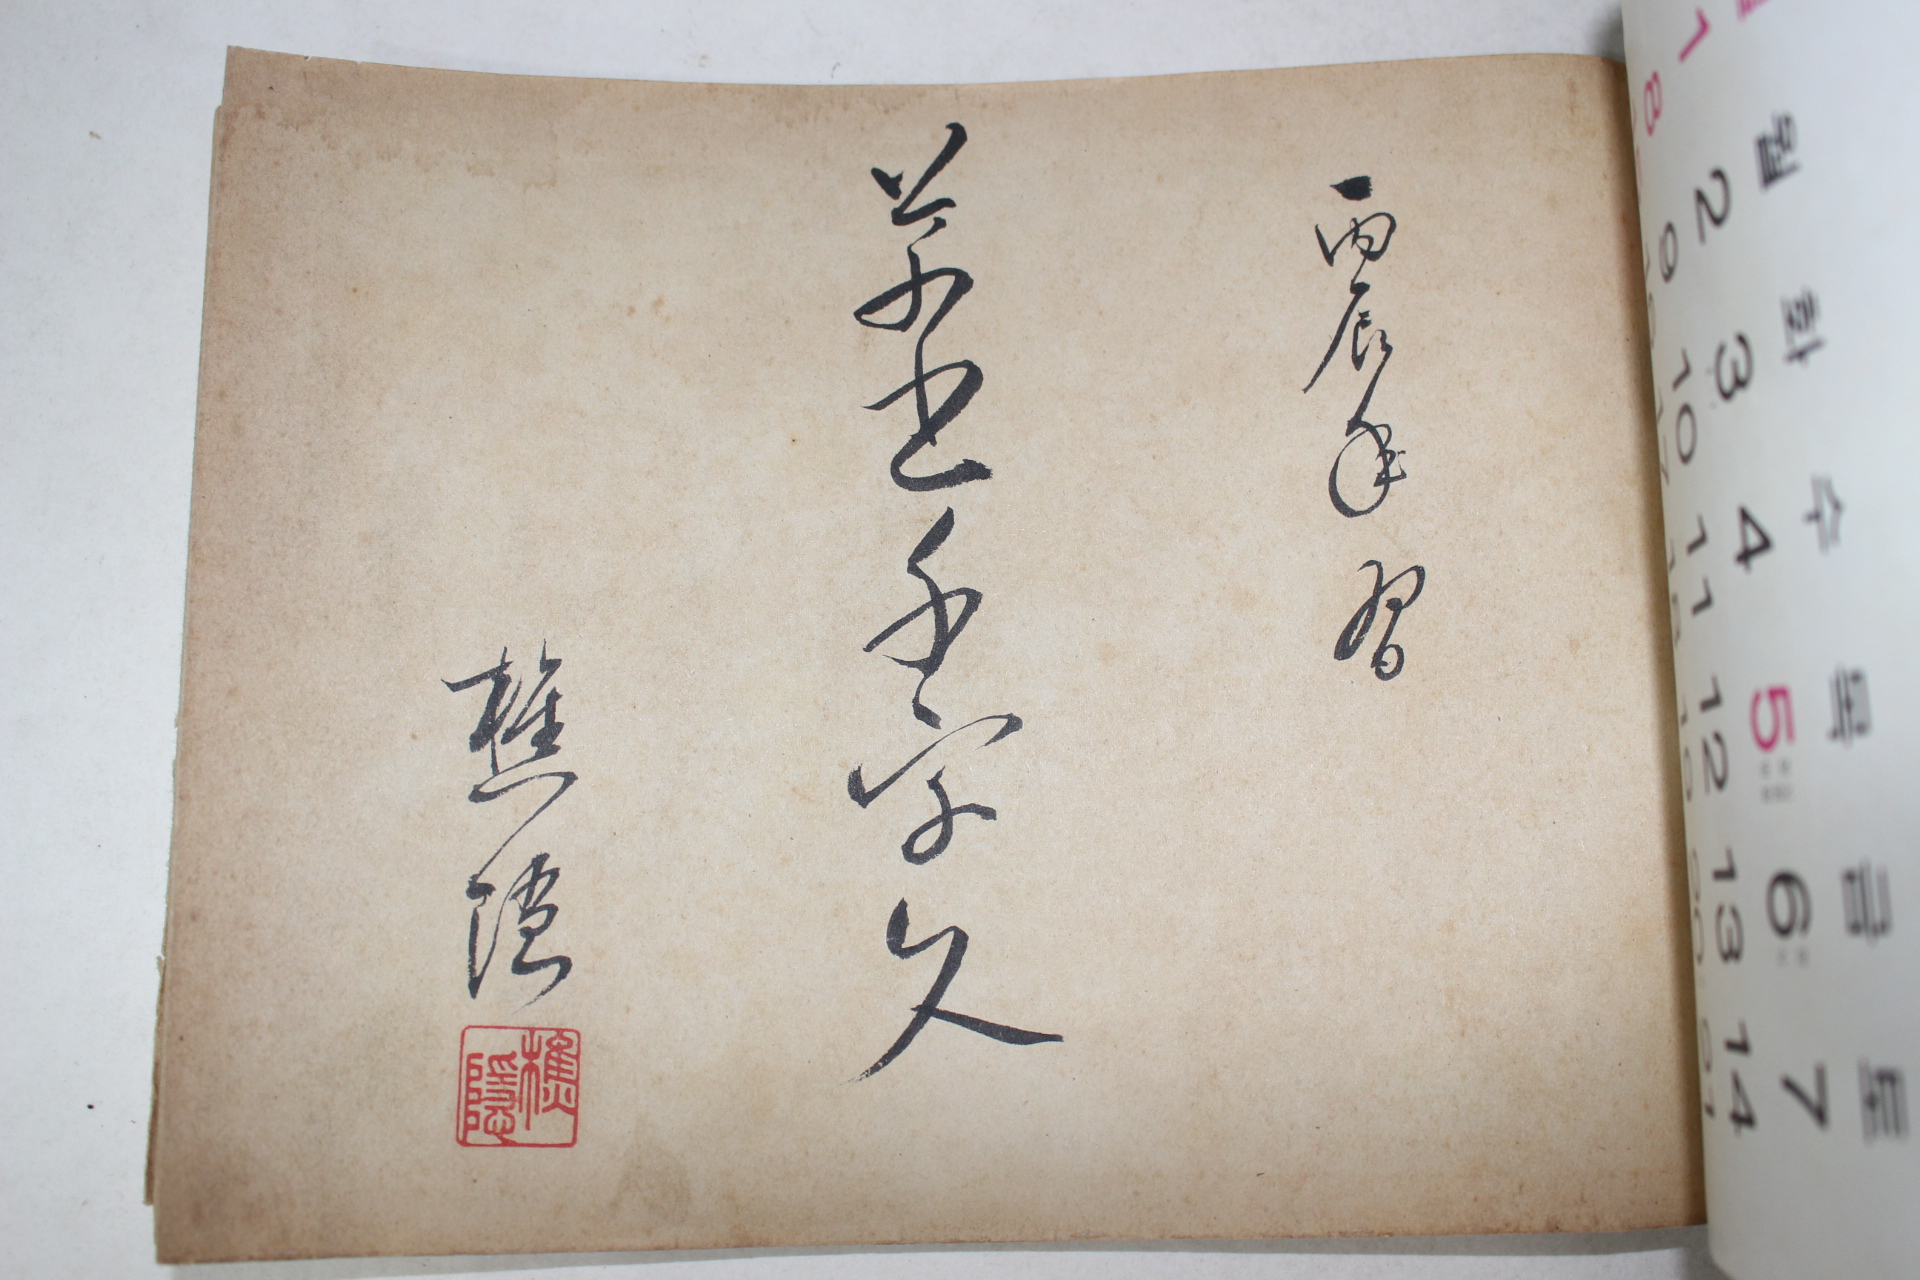 丙辰年 習
草書千字文
樵隱
樵隱
월 화 수 목 금 토
1 2 3 4 5 6 7
8 9 10 11 12 13 14